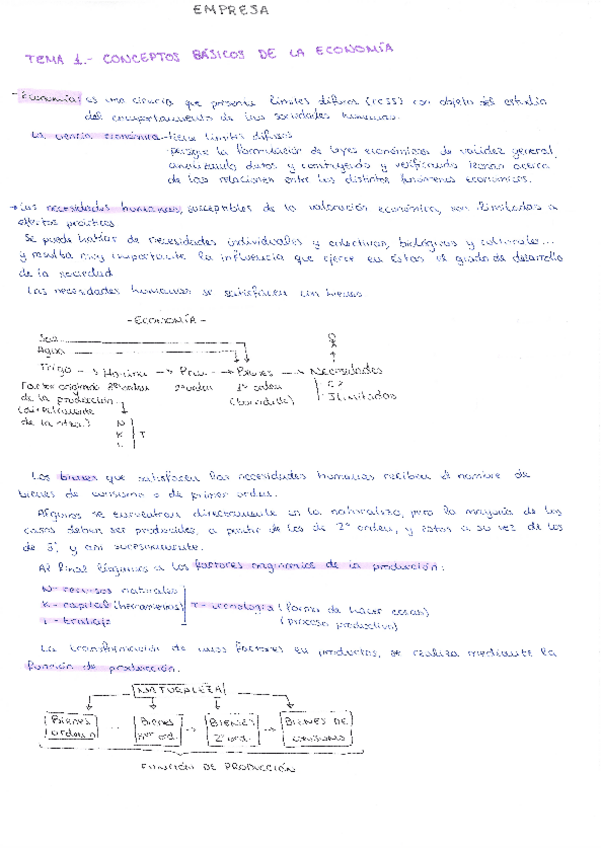 EMPRESA
TEMA 1.- CONCEPTOS BÁSICOS DE LA ECONOMÍA
Economía: es una ciencia que presenta límites difusos (CCSS) con objeto del estudio
del comportamiento de las sociedades humanas.
La ciencia económica - tiene límites difusos
- persigue la formulación de leyes económicas de validez general,
analizando datos y construyendo y verificando teorías acerca
de las relaciones entre los distintos fenómenos económicos.
→ Las necesidades humanas, susceptibles de la valoración económica, son ilimitadas a
efectos prácticos
Se puede hablar de necesidades individuales y colectivas, biológicas y culturales...
y resulta muy importante la influencia que ejerce en éstas el grado de desarrollo
de la sociedad
Las necesidades humanas se satisfacen con bienes
- ECONOMÍA -
Sal
Agua
Trigo → Harina → Pan → Bienes → Necesidades
Factor originario 3º orden 2º orden 1º orden
de la producción. (bocadillo) Ilimitadas
(directamente
de la ) N
K T
L
Los bienes que satisfacen las necesidades humanas reciben el nombre de
bienes de consumo o de primer orden.
Algunos se encuentran directamente en la naturaleza, pero la mayoría de los
casos deben ser producidos, a partir de los de 2º orden, y éstos a su vez de los
de 3º, y así sucesivamente.
Al final llegamos a los factores originarios de la producción:
N- recursos naturales
K - capital (herramientas) T - tecnología (forma de hacer cosas)
L - trabajo (proceso productivo)
La transformación de unos factores en productos, se realiza mediante la
función de producción.
NATURALEZA
Bienes ... Bienes → BIENES → BIENES DE
orden n orden 2º ord. consumo
FUNCIÓN DE PRODUCCIÓN